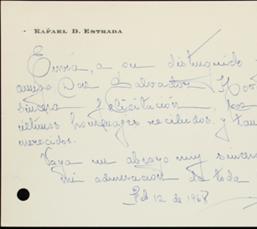 RAFAEL D. ESTRADA
Envía, a su distinguido
amigo Don Salvador
sincera felicitación, por
últimos homenajes recibidos, y tan
merecidos.
Vaya un abrazo muy sincero
mi admiración de toda
Feb 12 de 1968